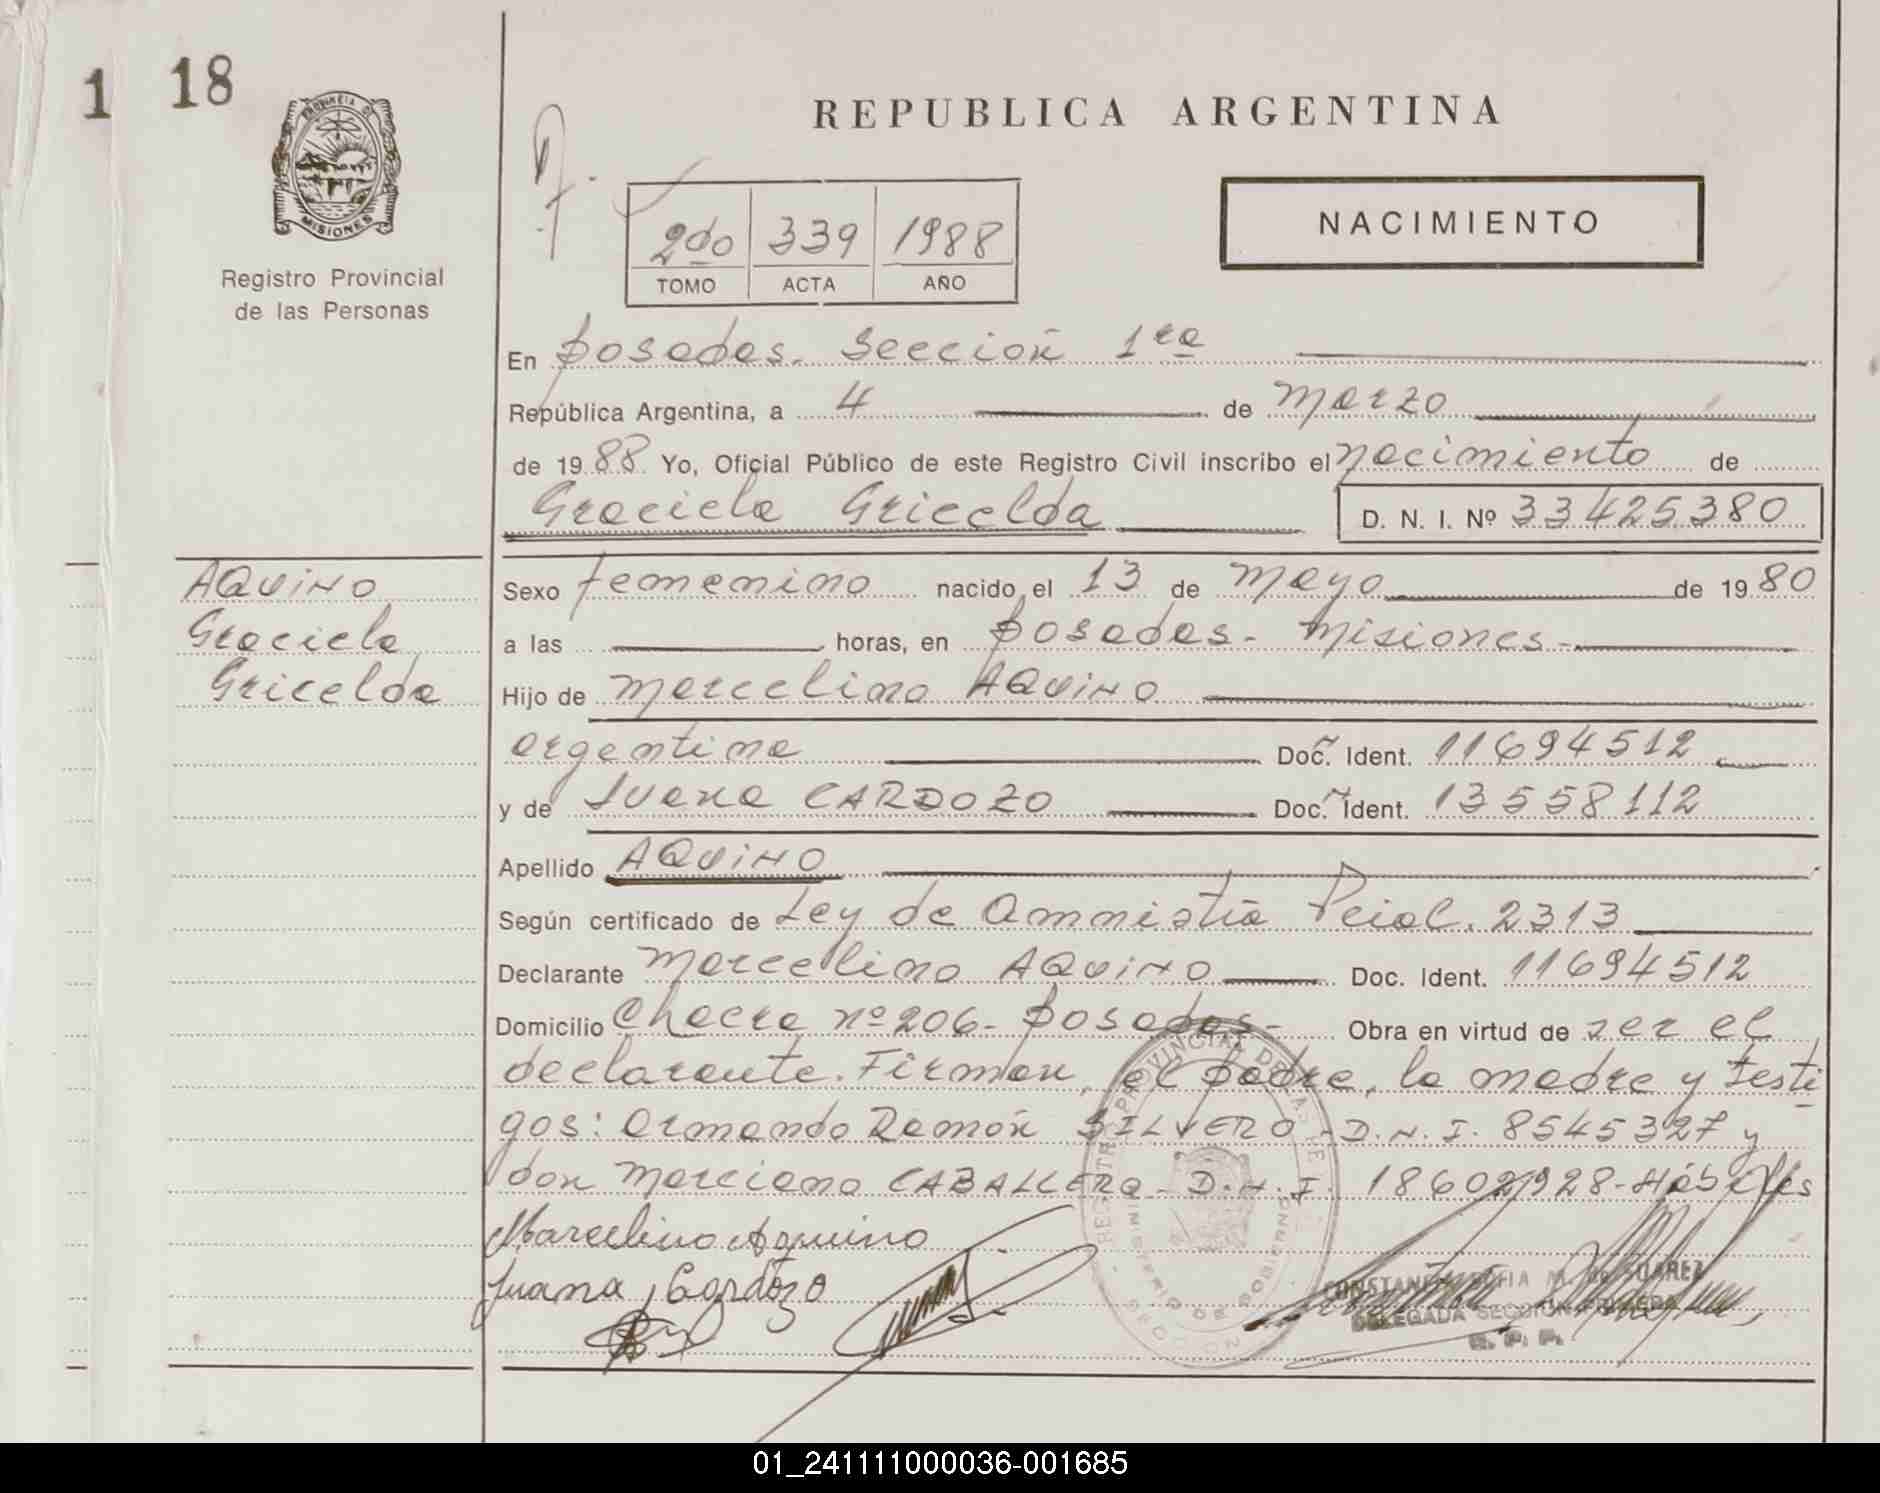 1 18
PROVINCIA DE
MISIONES
Registro Provincial
de las Personas
REPUBLICA ARGENTINA
2do 339 1988
TOMO ACTA AÑO
NACIMIENTO
En Posadas. Sección 1ra
República Argentina, a 4 de Marzo
de 1988 Yo, Oficial Público de este Registro Civil inscribo el nacimiento de
Graciela Gricelda D. N. I. Nº 33425380
AQUINO
Graciela
Gricelda
Sexo femenino nacido el 13 de Mayo de 1980
a las horas, en Posadas - Misiones -
Hijo de Marcelino AQUINO
argentina Doc. Ident. 11694512
y de Juana CARDOZO Doc. Ident. 13558112
Apellido AQUINO
Según certificado de Ley de Amnistía Pcial. 2313
Declarante Marcelino AQUINO Doc. Ident. 11694512
Domicilio Chacra nº 206 - Posadas - Obra en virtud de ser el
declarante. Firman, el padre, la madre y testi
gos: Armando Ramón SILVERO - D.N.I. 8545327 y
don Marciano CABALLERO - D.N.I. 18602928 - Hábiles
Marcelino Aquino
Juana Cardozo
CONSTANCIA SOFIA M. DE SUAREZ
DELEGADA SECCION PRIMERA
R. P. P.
01_241111000036-001685